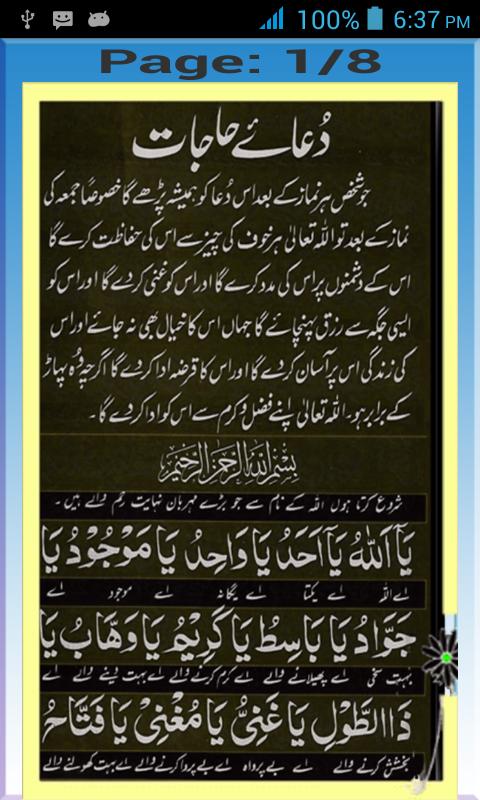 100% 6:37 PM
Page: 1/8
دُعائے حاجات
جو شخص ہر نماز کے بعد اس دُعا کو ہمیشہ پڑھے گا خصوصاً جمعہ کی
نماز کے بعد تو اللہ تعالیٰ ہر خوف کی چیز سے اس کی حفاظت کرے گا
اس کے دشمنوں پر اس کی مدد کرے گا اور اس کو غنی کر دے گا اور اس کو
ایسی جگہ سے رزق پہنچائے گا جہاں اس کا خیال بھی نہ جائے اور اس
کی زندگی اس پر آسان کر دے گا اور اس کا قرضہ ادا کر دے گا اگرچہ وُہ پہاڑ
کے برابر ہو۔ اللہ تعالیٰ اپنے فضل و کرم سے اس کو ادا کر دے گا۔
بِسْمِ اللهِ الرَّحْمٰنِ الرَّحِيْمِ
شروع کرتا ہوں اللہ کے نام سے جو بڑے مہربان نہایت رحم والے ہیں۔
يَآ اَللّٰهُ يَآ اَحَدُ يَا وَاحِدُ يَا مَوْجُوْدُ يَا
اے اللہ اے یکتا اے یگانہ اے موجود اے
جَوَّادُ يَا بَاسِطُ يَا كَرِيْمُ يَا وَهَّابُ يَا
بہت سخی اے پھیلانے والے اے کرم کرنے والے اے بہت دینے والے اے
ذَا الطَّوْلِ يَا غَنِيُّ يَا مُغْنِيْ يَا فَتَّاحُ
بخشش کرنے والے اے بے پرواہ اے بے پروا کرنے والے اے بہت کھولنے والے